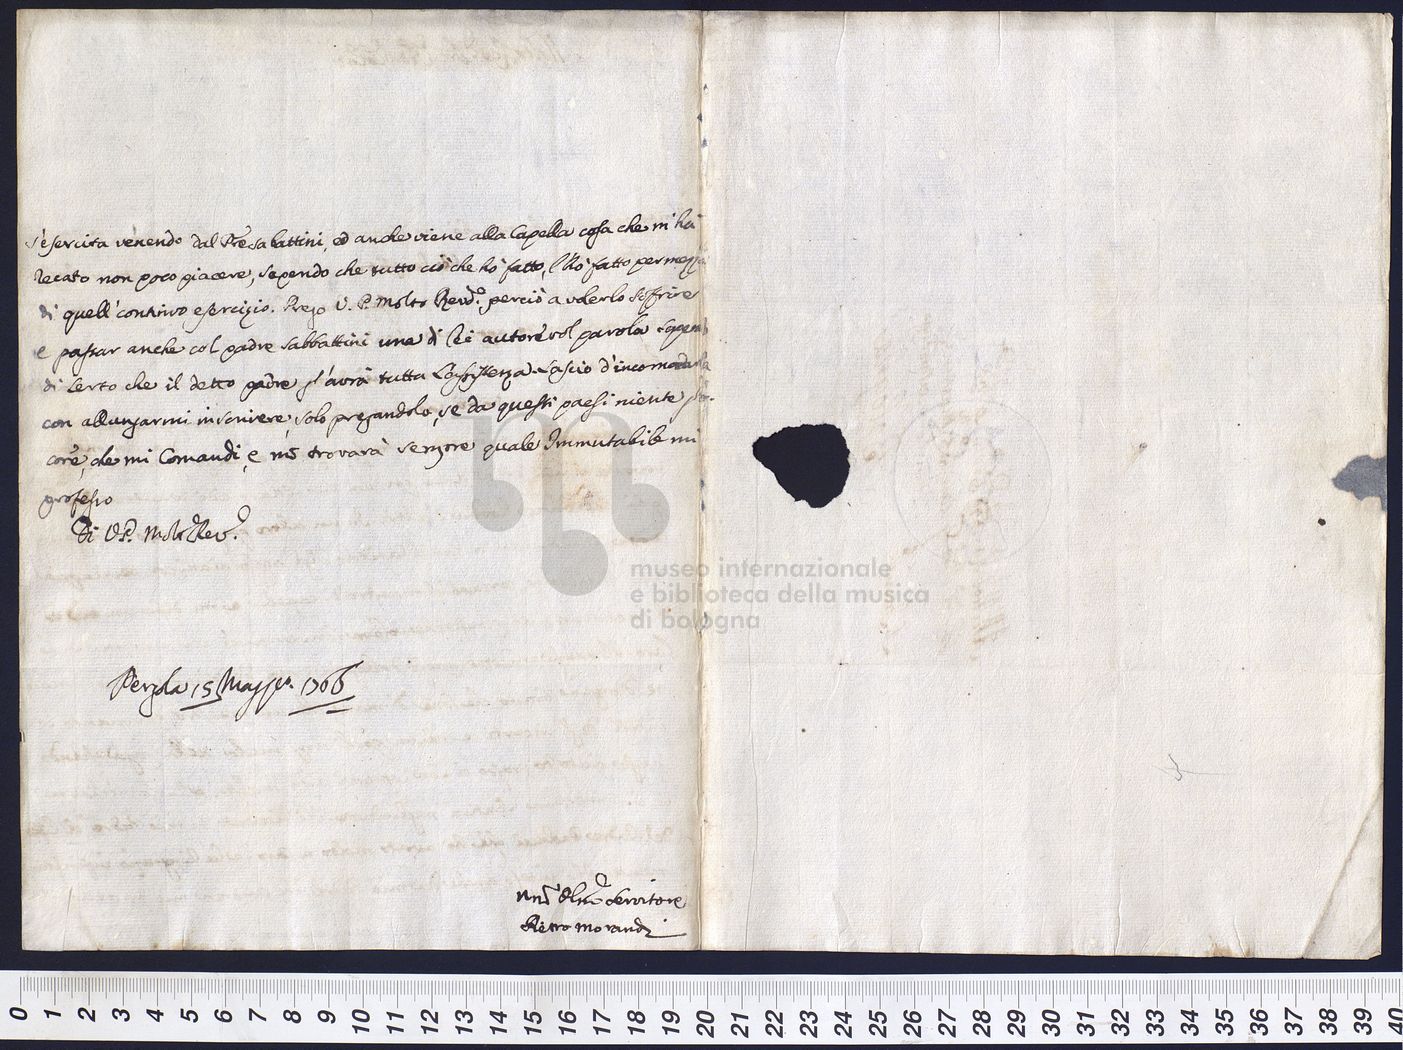 s'esercita venendo dal Pre Sabattini, ed anche viene alla Capella cosa che m'hà
recato non poco piacere, sapendo che tutto ciò che hò fatto, l'hò fatto per mezzo
di quell'continuo esercizio. Prego V. P. Molto Revda. perciò a volerlo soffrire
e passar anche col padre Sabbattini una di lei autorevol parola
di certo che il detto padre gl'avrà tutta l'assistenza. Lascio d'incomodarla
con allungarmi in scrivere, solo pregandolo, se da questi paesi niente
core, che mi Comandi, e mi trovarà sempre quale Immutabile mi
professo
Di V. P. Molto Rev.
Pergola 15 Maggio 1766
Servitore
Pietro Morandi
museo internazionale
e biblioteca della musica
di bologna
0 1 2 3 4 5 6 7 8 9 10 11 12 13 14 15 16 17 18 19 20 21 22 23 24 25 26 27 28 29 30 31 32 33 34 35 36 37 38 39 40